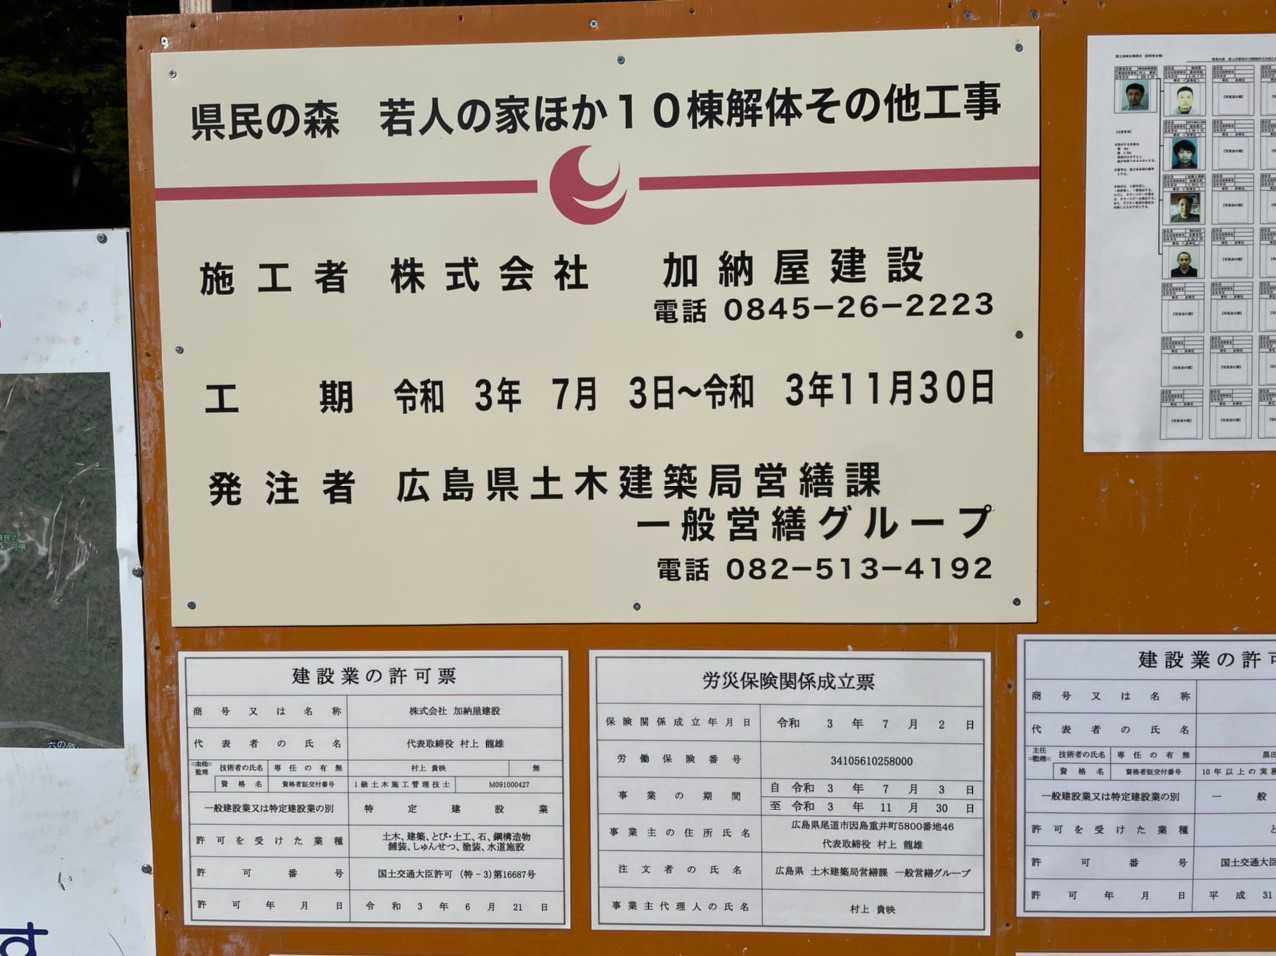 県民の森 若人の家ほか10棟解体その他工事
施工者 株式会社 加納屋建設
電話 0845-26-2223
工期 令和 3年 7月 3日～令和 3年11月30日
発注者 広島県土木建築局営繕課
一般営繕グループ
電話 082-513-4192
建設業の許可票
商号又は名称 株式会社 加納屋建設
代表者の氏名 代表取締役 村上 龍雄
主任 監理 技術者の氏名 専任の有無 村上 貴映 無
資格名 資格者証交付番号 1級土木施工管理技士 M091000427
一般建設業又は特定建設業の別 特定建設業
許可を受けた業種 土木、建築、とび・土工、石、鋼構造物
舗装、しゅんせつ、塗装、水道施設
許可番号 国土交通大臣許可（特-3）第16687号
許可年月日 令和 3年 6月 21日
労災保険関係成立票
保険関係成立年月日 令和 3年 7月 2日
労働保険番号 34105610258000
事業の期間 自 令和 3年 7月 3日
至 令和 3年 11月 30日
事業主の住所氏名 広島県尾道市因島重井町5800番地46
代表取締役 村上 龍雄
注文者の氏名 広島県 土木建築局営繕課 一般営繕グループ
事業主代理人の氏名 村上 貴映
建設業の許可
商号又は名称
代表者の氏名
主任 監理 技術者の氏名 専任の有無
資格名 資格者証交付番号 10年以上の実務
一般建設業又は特定建設業の別 一般
許可を受けた業種 と
許可番号 国土交通大臣
許可年月日 平成 31
す